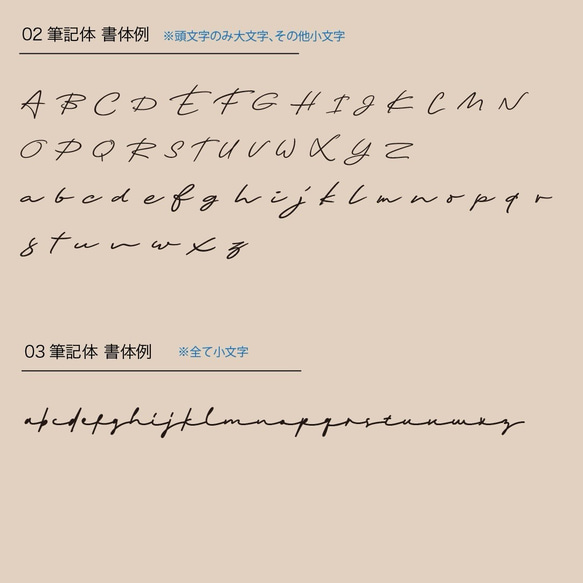 02 筆記体 書体例 ※頭文字のみ大文字、その他小文字
A B C D E F G H I J K L M N
O P Q R S T U V W X Y Z
a b c d e f g h i j k l m n o p q r
s t u v w x z
03 筆記体 書体例 ※全て小文字
abcdefghijklmnopqrstuvwxz